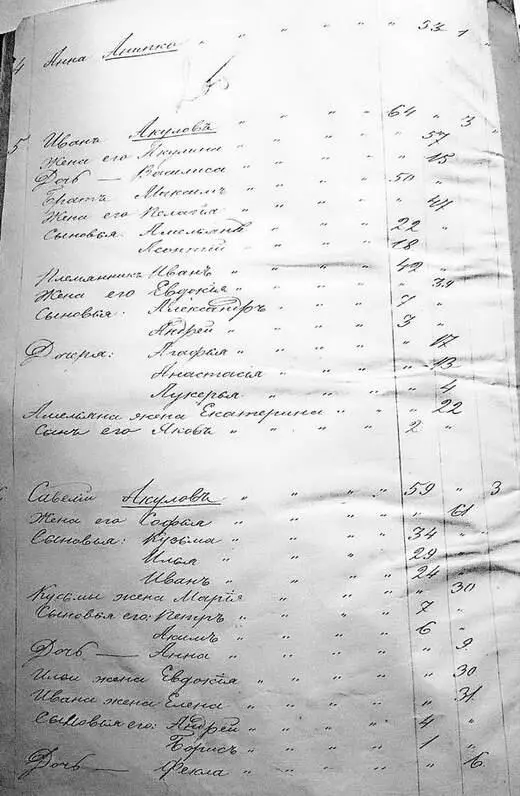 4 Анна Анипко " " " " " 33 1 "
5 Иванъ Акуловъ " " " " 64 " 3
Жена его Акулина " " " " " 57
Дочь — Василиса " " " " " 15
Братъ Максимъ " " " " 50 "
Жена его Пелагѣя " " " " " 47
Сыновья: Амельянъ " " " " 22 "
Леонтій " " " " 18
Племянникъ Иванъ " " " " 42 "
Жена его Евдокія " " " " " 39
Сыновья: Александръ " " " 7 "
Андрей " " " " 3 "
Дочеря: Агафья " " " " " 17
Анастасія " " " " 13
Лукерья " " " " 4
Амельяна жена Екатерина " " " 22
Сынъ его Яковъ " " " " 2 "
Савелій Акуловъ " " " " 59 " 3
Жена его Софья " " " " " 61
Сыновья: Кузьма " " " " 34 "
Илья " " " " 29 "
Иванъ " " " " 24 "
Кузьмы жена Марія " " " " " 30
Сыновья его: Петръ " " " " 7 "
Акимъ " " " " 6 "
Дочь — Анна " " " " " 9
Ильи жена Евдокія " " " " " 30
Ивана жена Елена " " " " " 31
Сыновья его: Андрей " " " " 4 "
Борисъ " " " " 1 "
Дочь — Фекла " " " " " 6